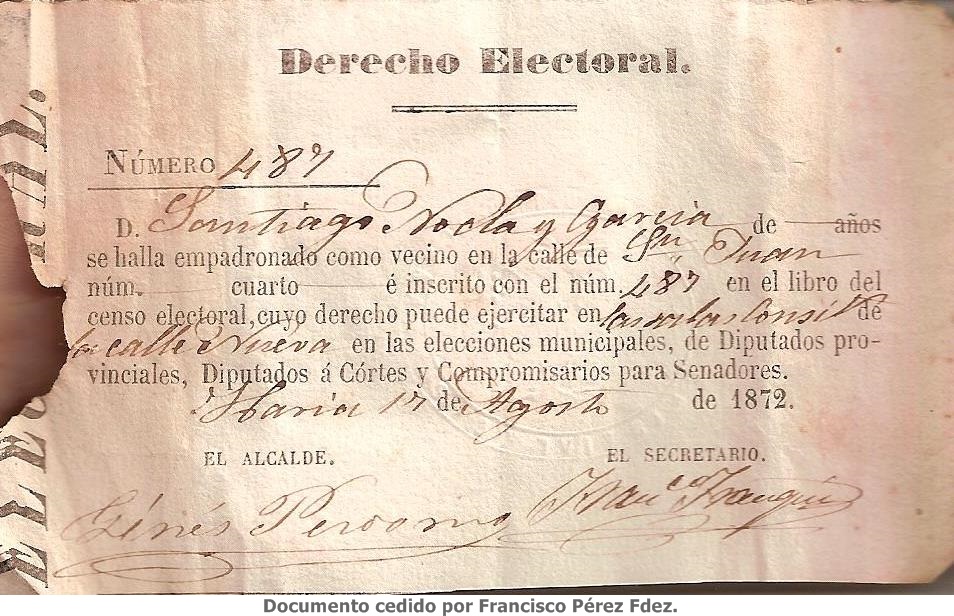 Derecho Electoral.
NÚMERO 487
D. Santiago Noda y Garcia de años
se halla empadronado como vecino en la calle de Sn Juan
núm. cuarto é inscrito con el núm. 487 en el libro del
censo electoral, cuyo derecho puede ejercitar en de
la calle Nueva en las elecciones municipales, de Diputados pro-
vinciales, Diputados á Córtes y Compromisarios para Senadores.
Haria 17 de Agosto de 1872.
EL ALCALDE. EL SECRETARIO.
Ginés Perdomo
Documento cedido por Francisco Pérez Fdez.